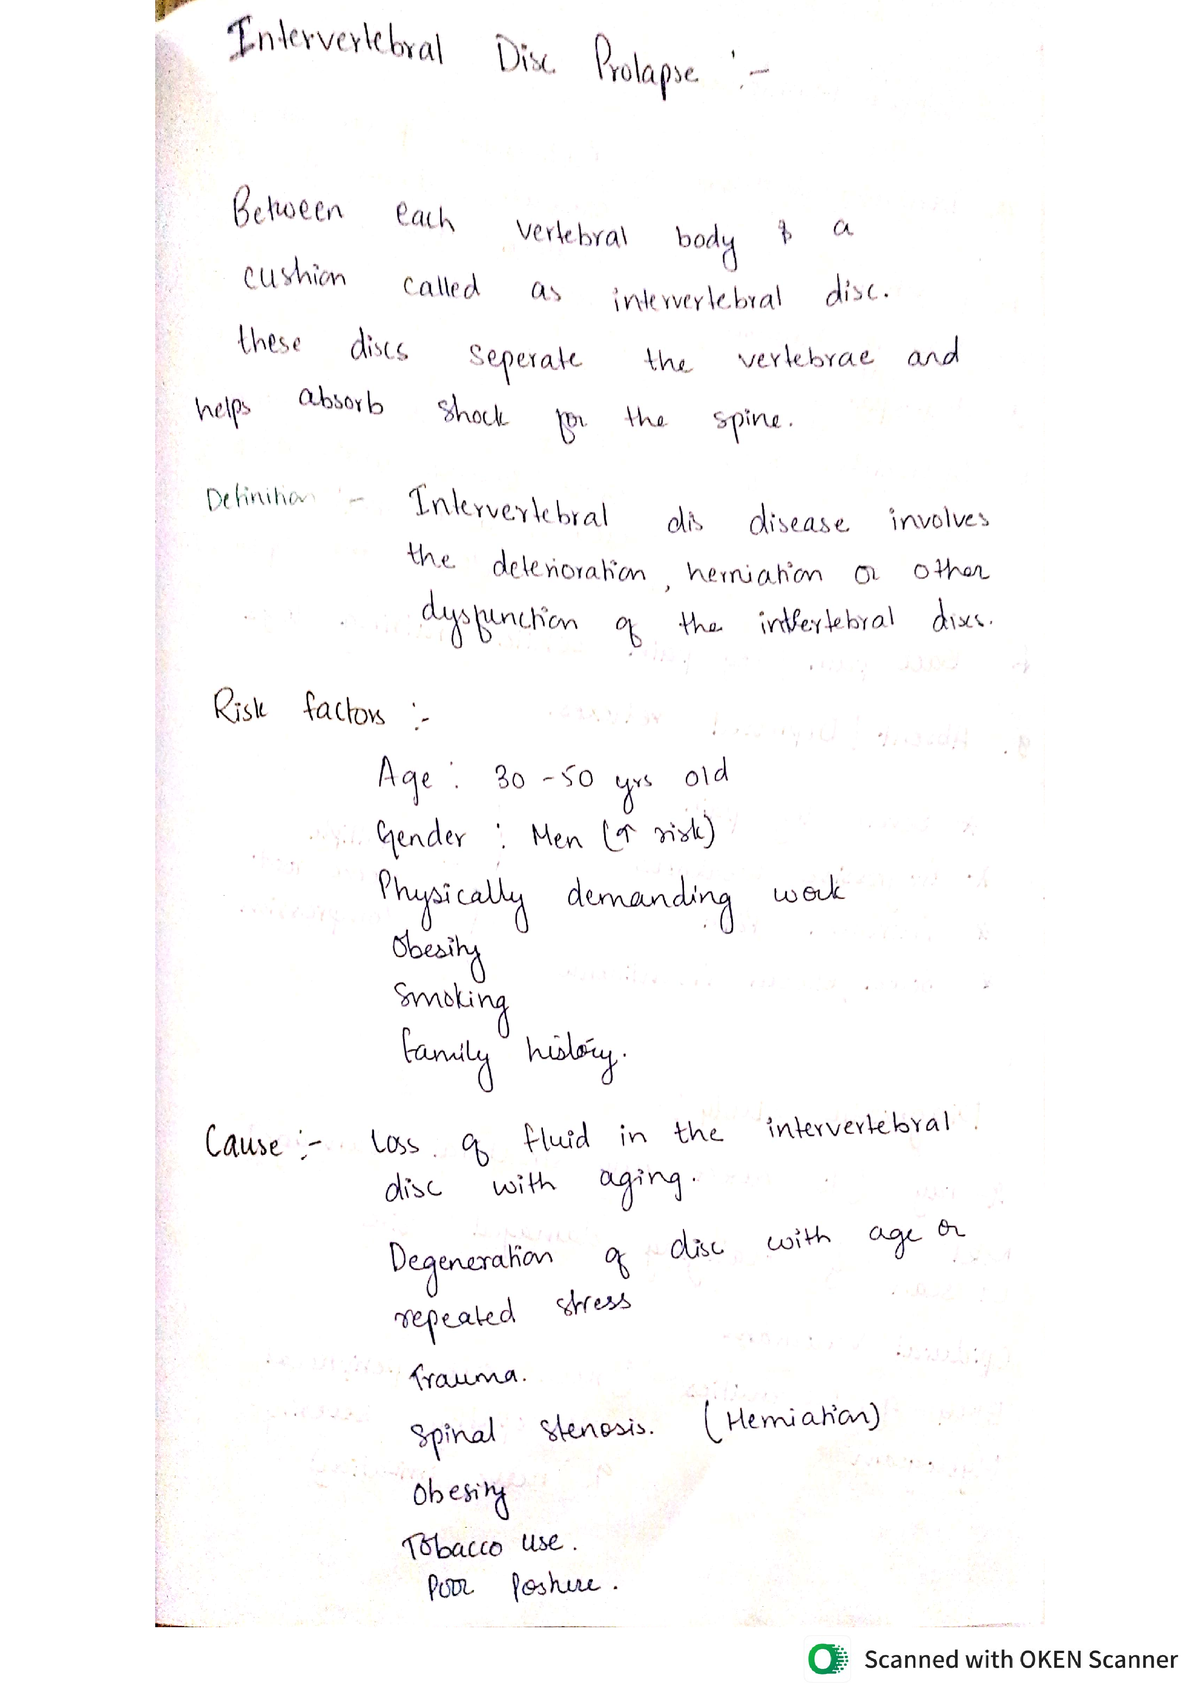 Intervertebral Disc Prolapse :-
Between each vertebral body is a
cushion called as intervertebral disc.
these discs seperate the vertebrae and
helps absorb shock for the spine.
Definition :- Intervertebral dis disease involves
the deterioration, herniation or other
dysfunction of the intervertebral discs.
Risk factors :-
Age : 30-50 yrs old
Gender : Men (↑ risk)
Physically demanding work
Obesity
Smoking
family history.
Cause :- Loss of fluid in the intervertebral
disc with aging.
Degeneration of disc with age or
repeated stress
Trauma.
Spinal stenosis. (Herniation)
Obesity
Tobacco use.
Poor Posture.
Scanned with OKEN Scanner